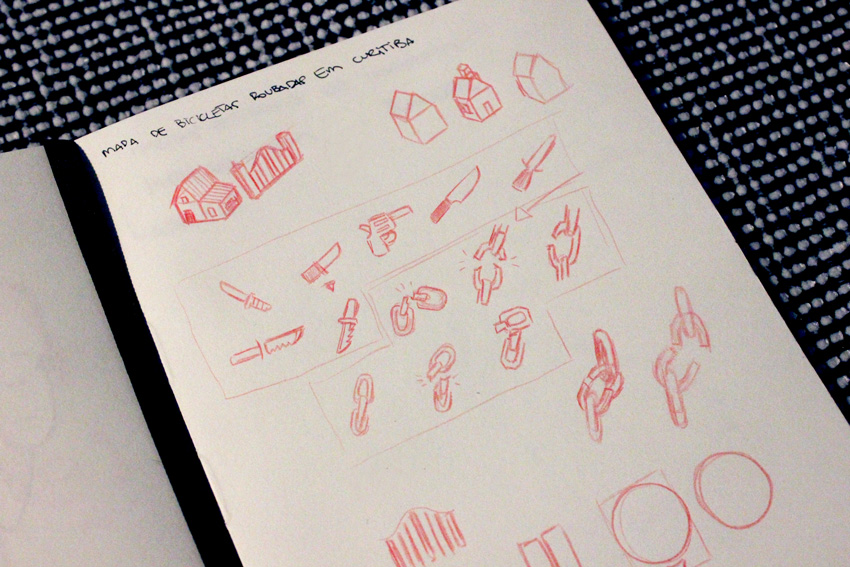 MAPA DE BICICLETAS ROUBADAS EM CURITIBA